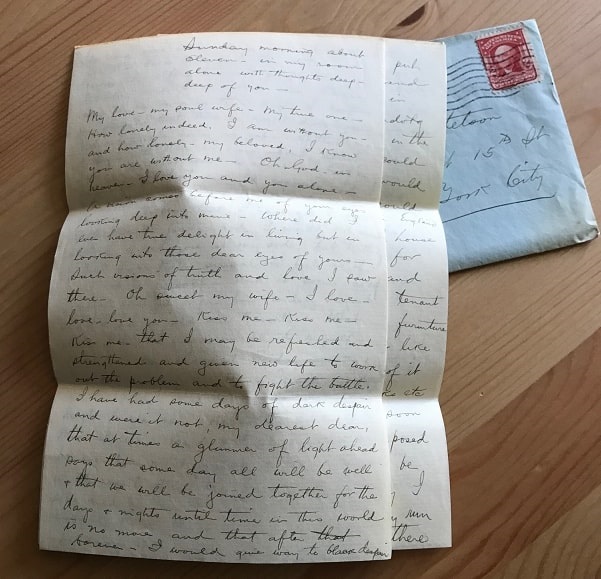 Sunday morning about
eleven - in my room
alone with thoughts deep -
deep of you -
My love - my soul wife - My true one -
How lonely indeed, I am without you -
and how lonely - my beloved, I know
you are without me - Oh God - in
heaven - I love you and you alone -
A vision comes before me of your eyes
looking deep into mine - Where did I
ever have true delight in living but in
looking into those dear eyes of yours -
Such visions of truth and love I saw
there - Oh sweet my wife - I love -
love - love you - Kiss me - Kiss me -
Kiss me - that I may be refreshed and
strengthened and given new life to work
out the problem and to fight the battle.
I have had some days of dark despair
and were it not, my dearest dear,
that at times a glimmer of light ahead
says that some day all will be well
+ that we will be joined together for the
days + nights until time in this world
is no more and that after that
forever - I would give way to black despair
put
and
in
in the
would
would
would
house
for
and
tenant
furniture
like
of it
soon
posed
be
I
run
there
15th St
York City